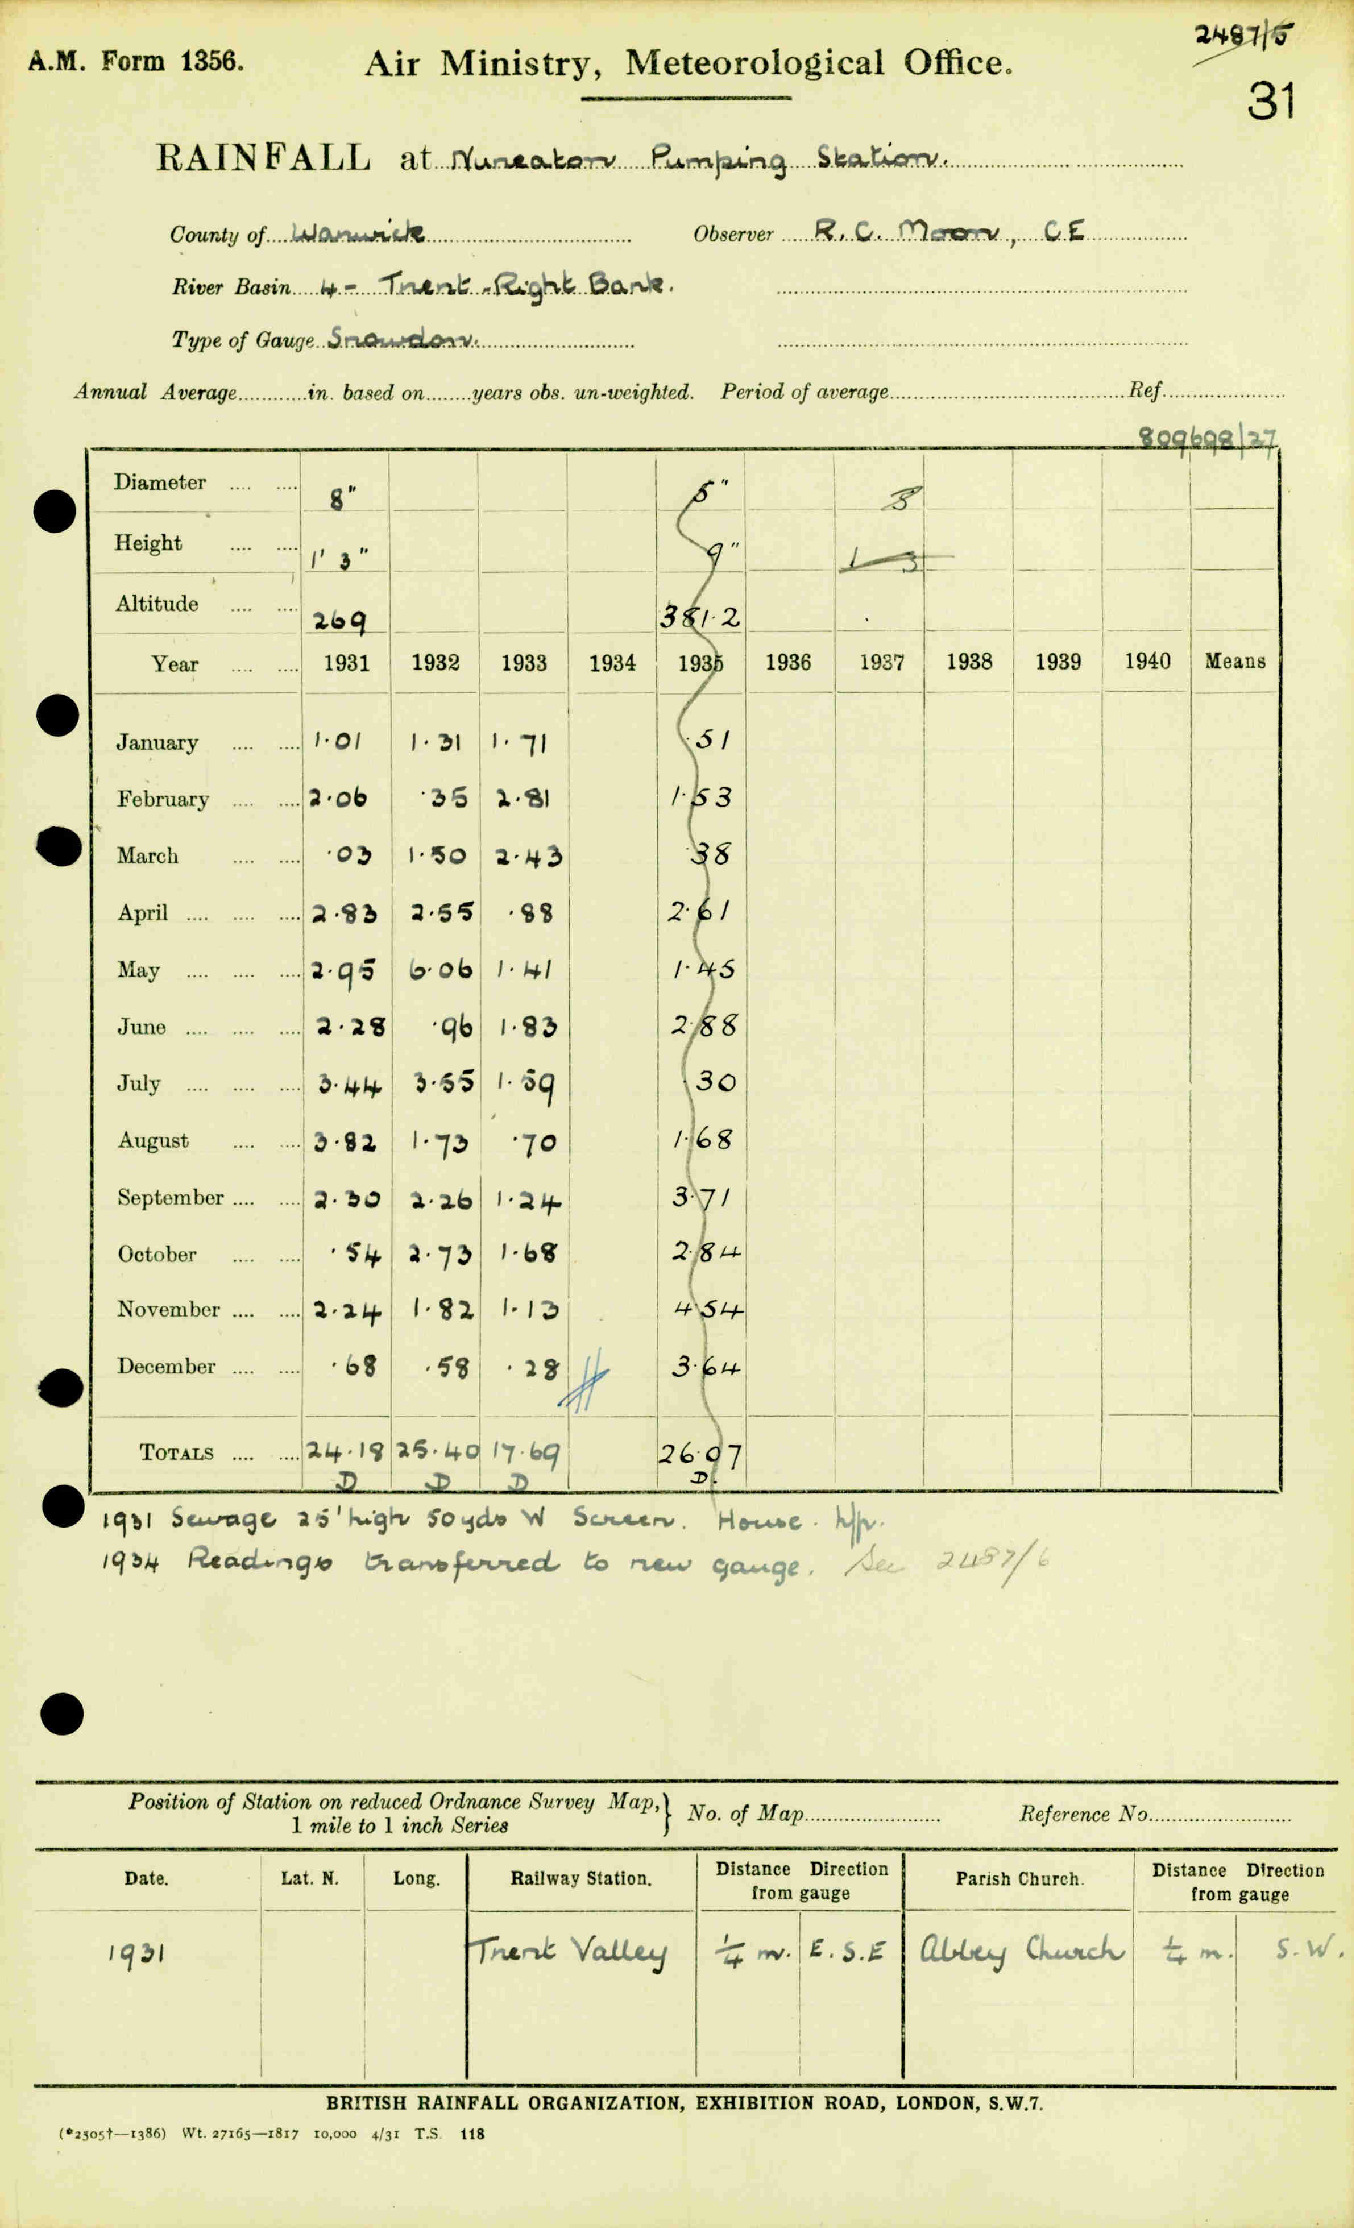 2487/5
A.M. Form 1356. Air Ministry, Meteorological Office.
31
RAINFALL at Nuneaton Pumping Station.
County of Warwick Observer R. C. Moon, CE
River Basin 4 - Trent - Right Bank.
Type of Gauge Snowdon.
Annual Average in. based on years obs. un-weighted. Period of average Ref.
809698/27
Diameter 8" 5" 8
Height 1' 3" 9" 1 3
Altitude 269 381.2
Year 1931 1932 1933 1934 1935 1936 1937 1938 1939 1940 Means
January 1.01 1.31 1.71 .51
February 2.06 .35 2.81 1.53
March .03 1.50 2.43 .38
April 2.83 2.55 .88 2.61
May 2.95 6.06 1.41 1.45
June 2.28 .96 1.83 2.88
July 3.44 3.55 1.59 .30
August 3.82 1.73 .70 1.68
September 2.30 2.26 1.24 3.71
October .54 2.73 1.68 2.84
November 2.24 1.82 1.13 4.54
December .68 .58 .28 3.64
TOTALS 24.18 25.40 17.69 26.07
D D D D.
1931 Sewage 25' high 50yds W Screen. House.
1934 Readings transferred to new gauge. See 2487/6
Position of Station on reduced Ordnance Survey Map, } No. of Map Reference No.
1 mile to 1 inch Series
Date. Lat. N. Long. Railway Station. Distance Direction from gauge Parish Church. Distance Direction from gauge
1931 Trent Valley 1/4 m. E.S.E Abbey Church 1/4 m. S.W.
BRITISH RAINFALL ORGANIZATION, EXHIBITION ROAD, LONDON, S.W.7.
(*2305†—1386) Wt. 27165—1817 10,000 4/31 T.S. 118